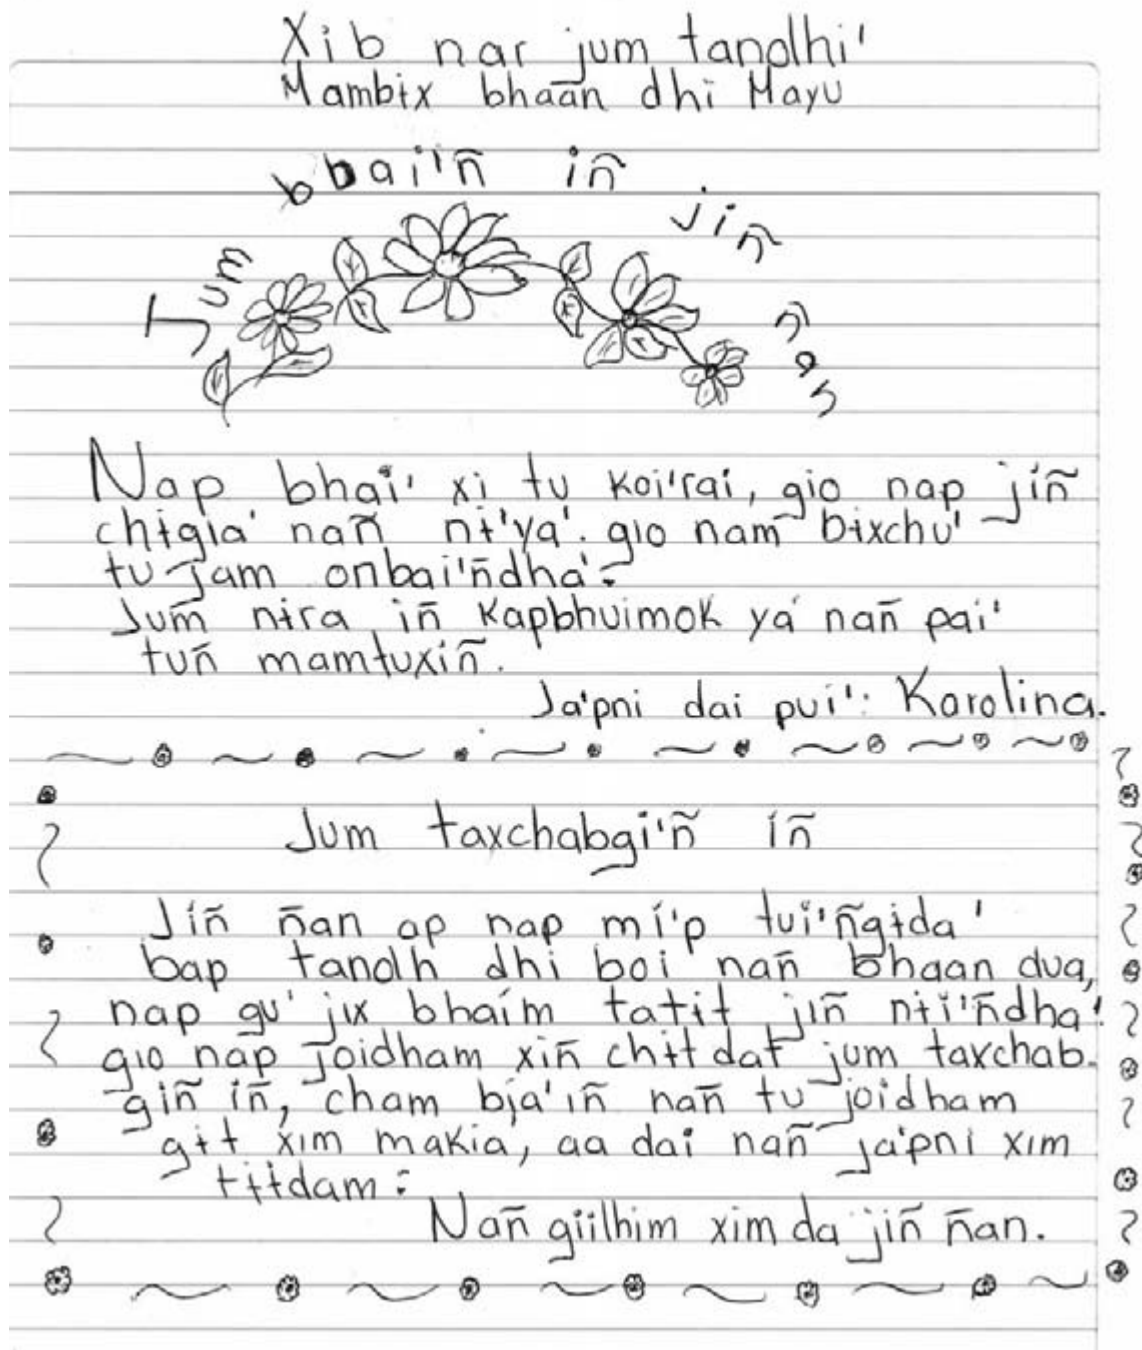 Xib nar jum tanolhi'
Mambɨx bhaan dhi Mayu
Jum bbai'ñ iñ jiñ ñan
Nap bhai' xi tu koi'rai, gio nap jiñ
chɨgia' nañ nɨ'ya'. gio nam bɨxchu'
tu jam onbai'ñdha'.
Jum nɨra iñ kapbhuimok ya' nañ pai'
tuñ mamtuxiñ.
Ja'pni dai pui': Karolina.
Jum taxchabgi'ñ iñ
Jiñ ñan ap nap mi'p tui'ñgɨda'
bap tanolh dhi boi nañ bhaan dua,
nap gu' jix bhaim tatɨt jiñ nɨi'ñdha'
gio nap joidham xiñ chɨtdat jum taxchab-
giñ iñ, cham bja'iñ nañ tu joidham
gɨt xim makia, aa dai nañ ja'pni xim
tɨtdam:
Nañ gïilhim xim da jiñ ñan.